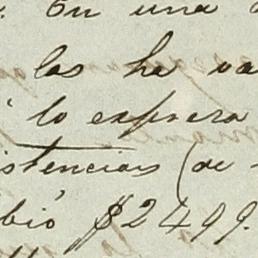 En una
las ha va
lo expresa
istencias (de
bió $2499.